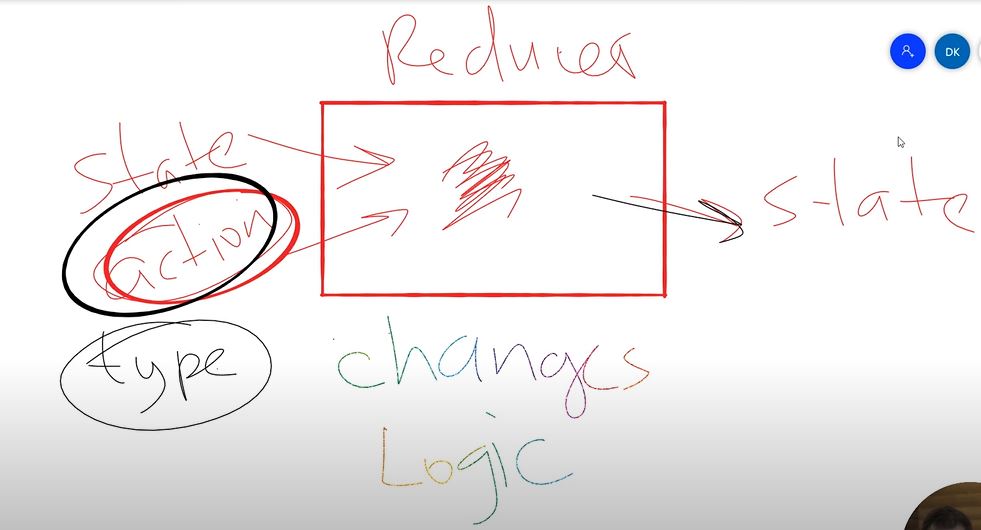 Reducer
DK
state
action
state
type
changes
Logic